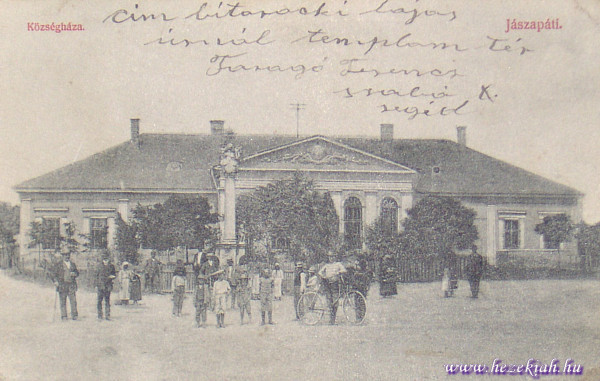 Községháza.
Jászapáti.
cim bitarocki lajos
úrnál templom tér
Faragó Ferencz
szabó
segéd
www.hezekiah.hu